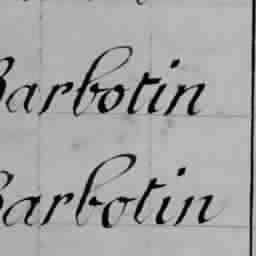 Barbotin
Barbotin